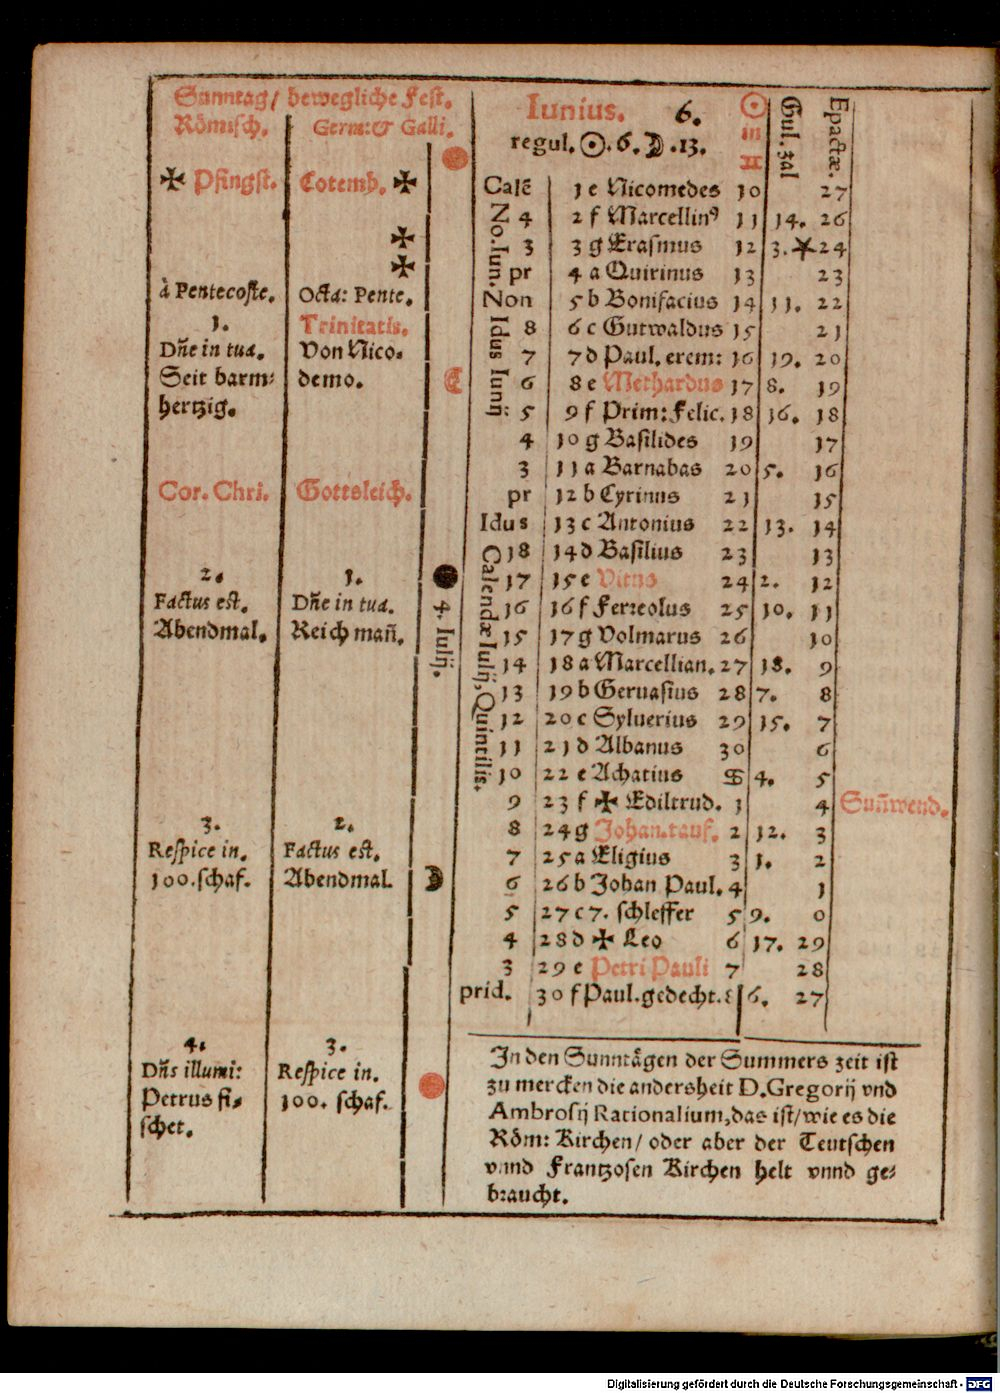 Sunntag/ bewegliche Fest.
Römisch. Germ: & Galli.
✠ Pfingst. Cotemb. ✠
✠
✠
à Pentecoste. Octa: Pente.
1. Trinitatis.
Dñe in tua. Von Nico-
Seit barm- demo.
hertzig.
Cor. Chri. Gottsleich.
2. 1.
Factus est. Dñe in tua.
Abendmal. Reich mañ.
3. 2.
Respice in. Factus est.
100. schaf. Abendmal.
4. 3.
Dñs illumi: Respice in.
Petrus fi- 100. schaf.
schet.
4. Iulij.
Iunius. 6. ☉ in ♊ Gul. zal Epactæ.
regul. ☉. 6. ☽ .13.
No. Iun.
Idus Iunij
Calendæ Iulij, Quintilis.
Calē 1 e Nicomedes 10 27
4 2 f Marcellinꝰ 11 14. 26
3 3 g Erasmus 12 3. 24
pr 4 a Quirinus 13 23
Non 5 b Bonifacius 14 11. 22
8 6 c Gutwaldus 15 21
7 7 d Paul. erem: 16 19. 20
6 8 e Methardus 17 8. 19
5 9 f Prim: Felic. 18 16. 18
4 10 g Basilides 19 17
3 11 a Barnabas 20 5. 16
pr 12 b Cyrinus 21 15
Idus 13 c Antonius 22 13. 14
18 14 d Basilius 23 13
17 15 e Vitus 24 2. 12
16 16 f Ferreolus 25 10. 11
15 17 g Volmarus 26 10
14 18 a Marcellian. 27 18. 9
13 19 b Geruasius 28 7. 8
12 20 c Syluerius 29 15. 7
11 21 d Albanus 30 6
10 22 e Achatius ♋ 4. 5
9 23 f ✠ Ediltrud. 1 4 Suñwend.
8 24 g Johan. tauf. 2 12. 3
7 25 a Eligius 3 1. 2
6 26 b Johan Paul. 4 1
5 27 c 7. schleffer 5 9. 0
4 28 d ✠ Leo 6 17. 29
3 29 e Petri Pauli 7 28
prid. 30 f Paul. gedecht. 8 6. 27
In den Sunntågen der Summers zeit ist
zu mercken die andersheit D. Gregorij vnd
Ambrosij Rationalium, das ist/ wie es die
Röm: Kirchen/ oder aber der Teutschen
vnnd Frantzosen Kirchen helt vnnd ge-
braucht.
Digitalisierung gefördert durch die Deutsche Forschungsgemeinschaft - DFG